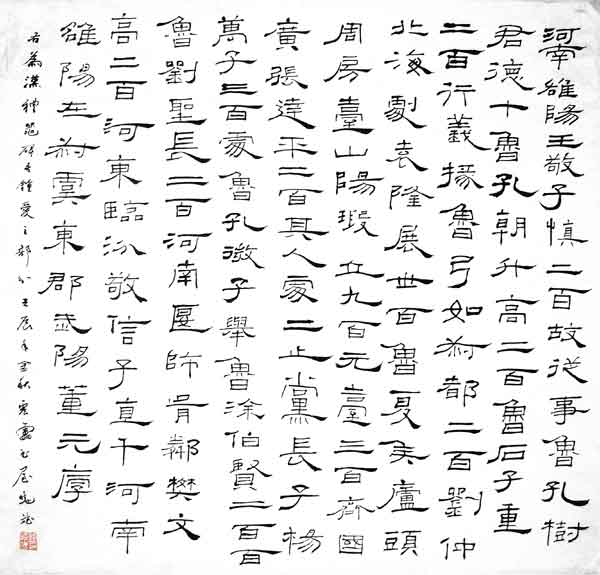 河南雒陽王敬子慎二百故從事魯孔樹
君德十魯孔朝升高二百魯石子重
二百行義掾魯弓如叔都二百劉仲
北海劇袁隆展世百魯夏侯廬頭
周房臺山陽瑕丘九百元臺三百齊國
廣張建平二百其人處二上黨長子楊
萬子三百處魯孔徵子舉魯涂伯賢二百百
魯劉聖長二百河南匽師胥鄰樊文
高二百河東臨汾敬信子直千河南
雒陽左叔虞東郡武陽董元厚
右為漢禮器碑 鍾愛之部分壬辰年金秋